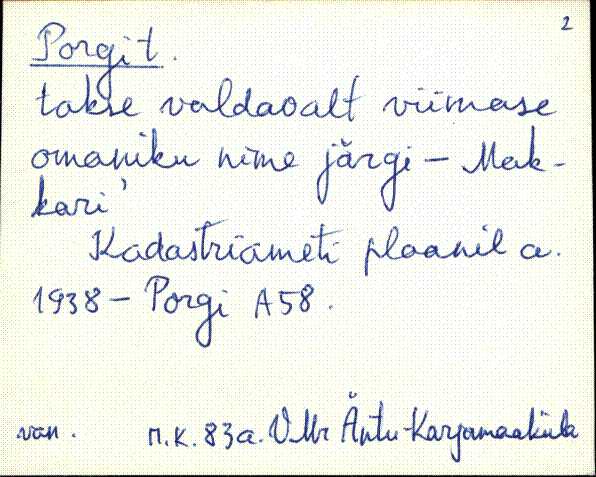 2
Porgi t.
takse valdavalt viimase
omaniku nime järgi – Mak-
kari'
Kadastriameti plaanil a.
1938 – Porgi A58.
van. п.к. 83a. VMr Äntu-Karjamaaküla